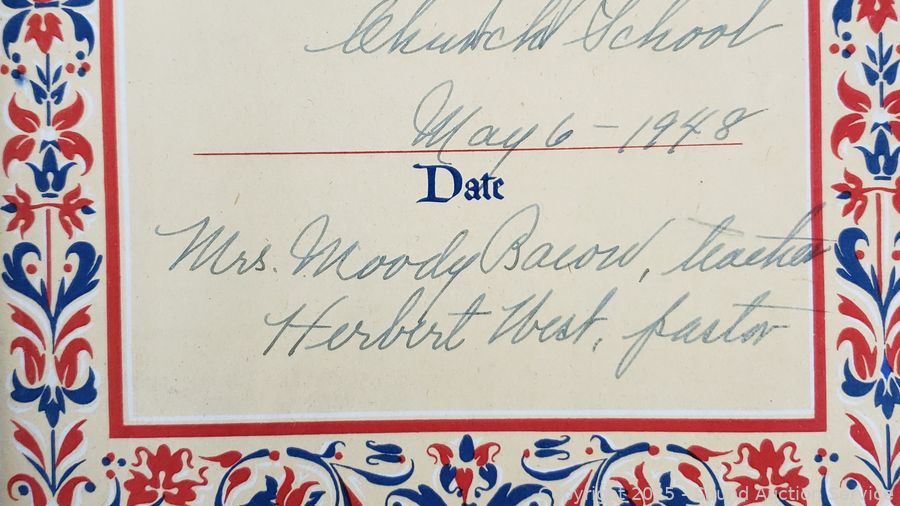 Church School
May 6 - 1948
Date
Mrs. Moody Bacon, teacher
Herbert West, pastor
Copyright 2025 - Sound Auction Service